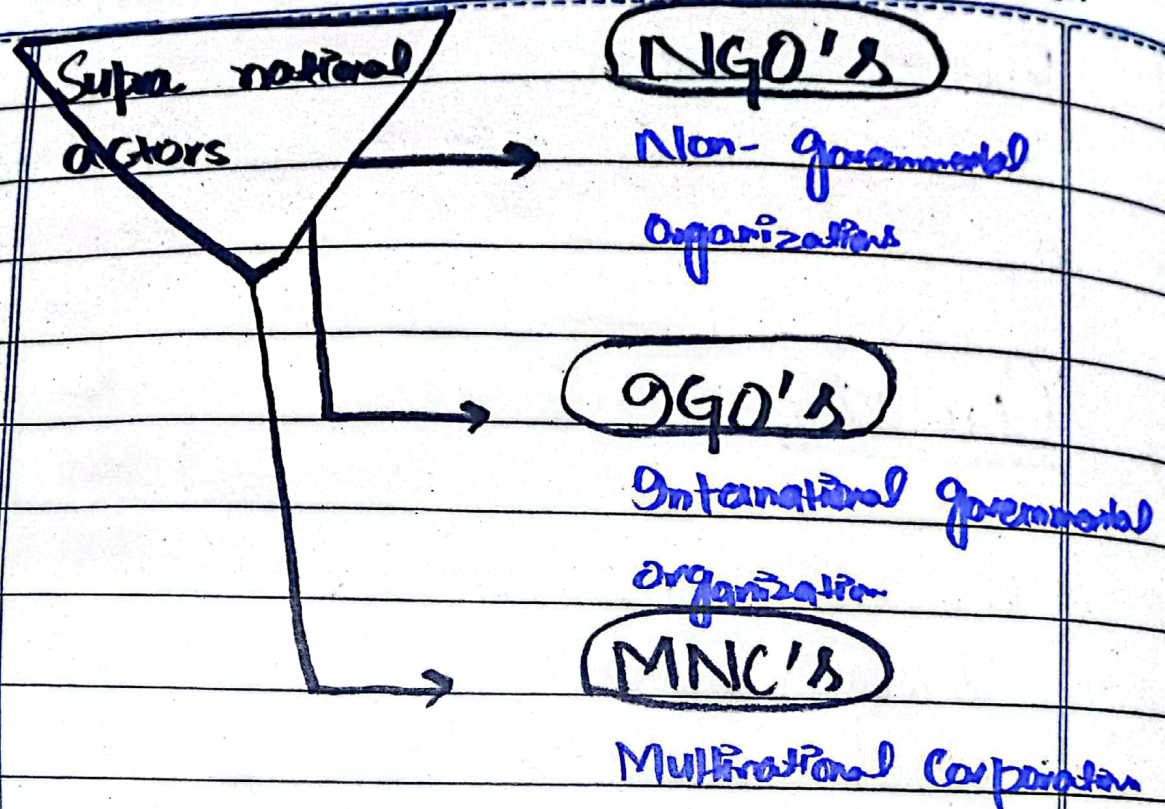 Supra national
actors
NGO's
Non- governmental
organizations
IGO's
International governmental
organization
MNC's
Multinational Corporation